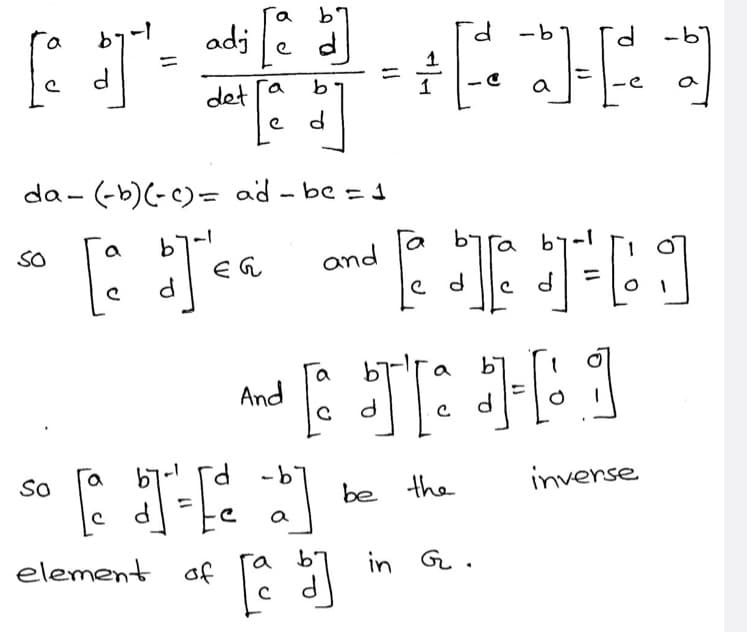 [a b; c d]⁻¹ = adj [a b; c d] / det [a b; c d] = 1/1 [d -b; -c a] = [d -b; -c a]
da - (-b)(-c) = ad - bc = 1
so [a b; c d]⁻¹ ∈ G and [a b; c d][a b; c d]⁻¹ = [1 0; 0 1]
And [a b; c d]⁻¹[a b; c d] = [1 0; 0 1]
so [a b; c d]⁻¹ = [d -b; -c a] be the inverse
element of [a b; c d] in G.